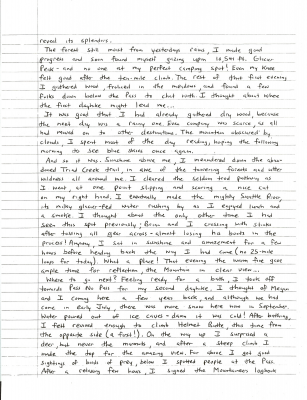 reveal its splendors.
The forest still moist from yesterdays rains, I made good
progress and soon found myself gazing upon 10,541 ft. Glacier
Peak - and no one at my perfect camping spot! Even my knee
felt good after the ten-mile climb. The rest of that first evening
I gathered wood, frolicked in the meadows, and found a few
folks down below the Pass to chat with. I thought about where
the first dayhike might lead me...
It was good that I had already gathered dry wood, because
the next day was a rainy one. Even company was scarce, as all
had moved on to other destinations. The mountain obscured by
clouds I spent most of the day reading, hoping the following
morning to see blue skies once again.
And so it was. Sunshine above me, I meandered down the aban-
doned Triad Creek trail, in awe of the towering forests and utter
wildness all around me. I cleared the seldom trod pathway as
I went, at one point slipping and scoring a nice cut
on my right hand. I eventually made the mighty Suiattle River,
its milky glacier-fed water rushing by as I enjoyed lunch and
a smoke. I thought about the only other time I had
seen this spot previously: Brian and I crossing with sticks
after tossing all gear across, almost losing his boots in the
process! Anyway, I sat in sunshine and amazement for a few
hours before heading back the way I had come (no 25-mile
loops for today). What a place! That evening the warm fire gave
ample time for reflection, the Mountain in clear view...
Where to go next? Feeling ready for a bath, I took off
towards Pass No Pass for my second dayhike. I thought of Megan
and I coming here a few years back, and although we had
come in early July there was more snow here now in September.
Water poured out of ice caves - damn it was cold! After bathing,
I felt revived enough to climb Helmet Butte, this time from
the opposite side (a first!). On the way up I surprised a
deer, but never the marmots, and after a steep climb I
made the top for the amazing view. Far above I got good
sightings of birds of prey, below I spotted people at the Pass.
After a relaxing few hours, I signed the Mountaineers logbook